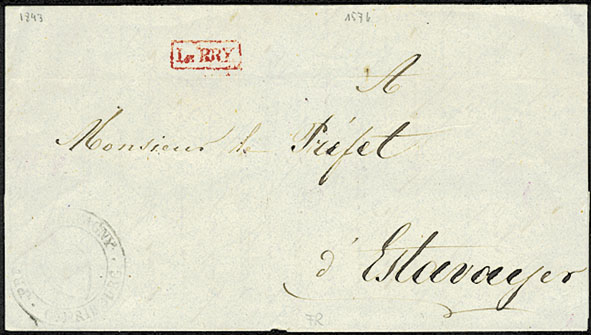 1843 1536
Le BRY
A
Monsieur le Préfet
d'Estavayer
72